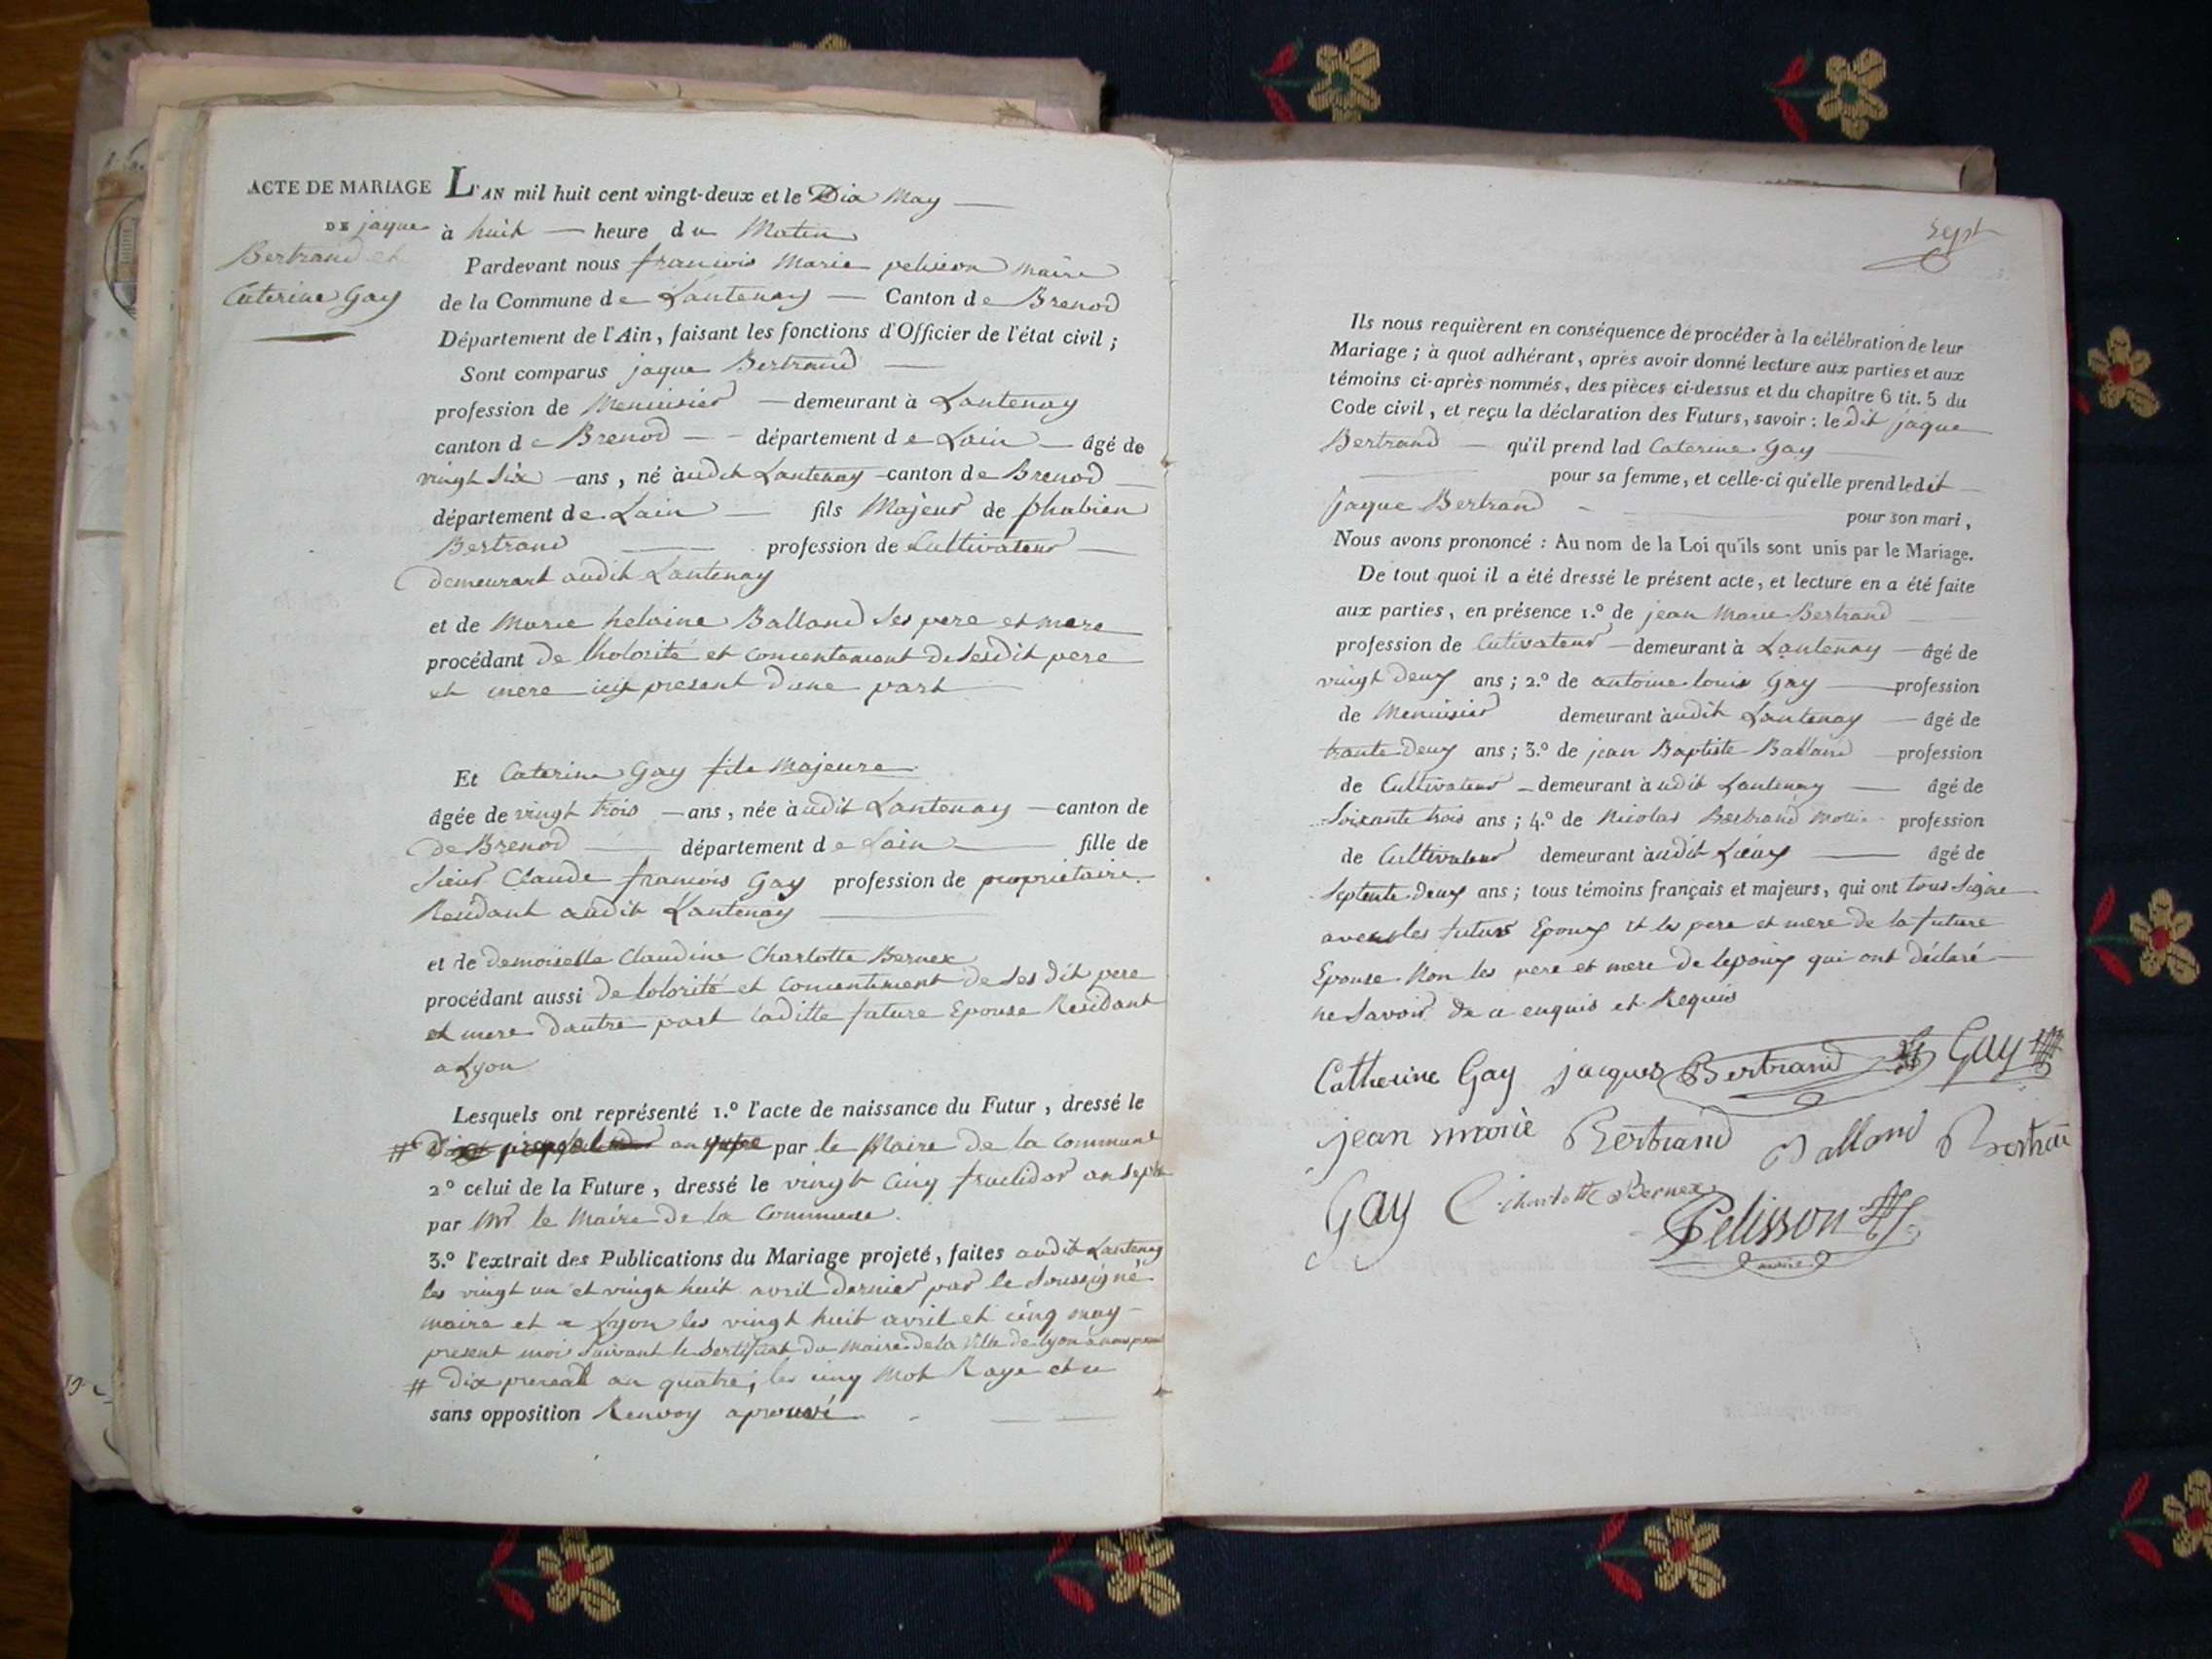 ACTE DE MARIAGE
DE jaque
Bertrand et
Caterine Gay
L'AN mil huit cent vingt-deux et le Dix May
à huit heure du Matin
Pardevant nous francois Marie pelisson Maire
de la Commune de Lantenay Canton de Brenod
Département de l'Ain, faisant les fonctions d'Officier de l'état civil ;
Sont comparus jaque Bertrand
profession de Menuisier demeurant à Lantenay
canton de Brenod département de Lain âgé de
vingt Six ans, né audit Lantenay canton de Brenod
département de Lain fils Majeur de phabien
Bertrand profession de Cultivateur
demeurant audit Lantenay
et de Marie helaine Balland Ses pere et mere
procédant de lhotorité et concentement de Sesdit pere
et mere icy present dune part
Et Caterine Gay file Majeure
âgée de vingt trois ans, née audit Lantenay canton de
de Brenod département de Lain fille de
Sieur Claude francois Gay profession de propriétaire
Residant audit Lantenay
et de demoiselle Claudine Charlotte Bernex
procédant aussi de lotorité et concentement de Ses dit pere
et mere dautre part laditte future Epouse Residant
a Lyon
Lesquels ont représenté 1.º l'acte de naissance du Futur, dressé le
# par le Maire de la Commune
2º celui de la Future, dressé le vingt Cinq fructidor an Sept
par Mr le Maire de la Commune.
3.º l'extrait des Publications du Mariage projeté, faites audit Lantenay
les vingt un et vingt huit avril dernier par le Soussigné
maire et a Lyon les vingt huit avril et cinq may
present moi Suivant le Sertificat du Maire de la Ville de Lyon
# Dix prereal an quatre, les cinq Mot Raye et ce
sans opposition Renvoy aprouvé
Sept
Ils nous requièrent en conséquence de procéder à la célébration de leur
Mariage ; à quoi adhérant, après avoir donné lecture aux parties et aux
témoins ci-après nommés, des pièces ci-dessus et du chapitre 6 tit. 5 du
Code civil, et reçu la déclaration des Futurs, savoir : le dit jaque
Bertrand qu'il prend lad Caterine Gay
pour sa femme, et celle-ci qu'elle prend ledit
jaque Bertrand pour son mari,
Nous avons prononcé : Au nom de la Loi qu'ils sont unis par le Mariage.
De tout quoi il a été dressé le présent acte, et lecture en a été faite
aux parties, en présence 1.º de jean Marie Bertrand
profession de Cutivateur demeurant à Lantenay âgé de
vingt deux ans ; 2.º de antoine louis Gay profession
de Menuisier demeurant audit Lantenay âgé de
trante deux ans ; 3.º de jean Baptiste Balland profession
de Cultivateur demeurant audit Lantenay âgé de
Soixante trois ans ; 4.º de Nicolas Bertrand profession
de Cultivateur demeurant audit Lieux âgé de
Septente deux ans ; tous témoins français et majeurs, qui ont tous Signe
avec les futurs Epoux et les pere et mere de la future
Epouse Non les pere et mere de lepoux qui ont déclaré
ne Savoir de ce enquis et Requis
Catherine Gay jacques Bertrand Gay
jean marie Bertrand Balland Bertran
Gay Charlotte Bernex
Pelisson
maire